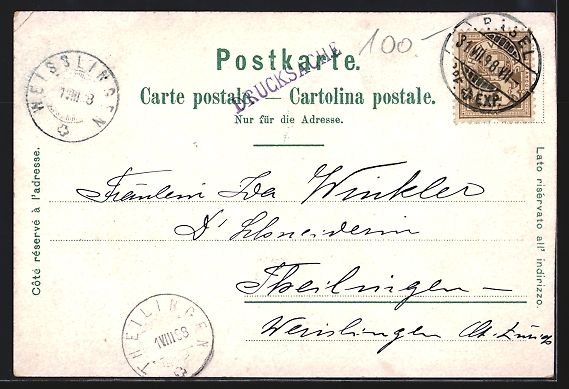 Postkarte.
100.-
DRUCKSACHE
BASEL
31.VII.98.VII
EXP.
WEISSLINGEN
1.VIII.98
Carte postale. — Cartolina postale.
Nur für die Adresse.
Côté réservé à l'adresse.
Lato riservato all' indirizzo.
Fräulein Ida Winkler
D' Schneiderin
Theilingen
Weisslingen Ct. Zürich
THEILINGEN
1.VIII.98